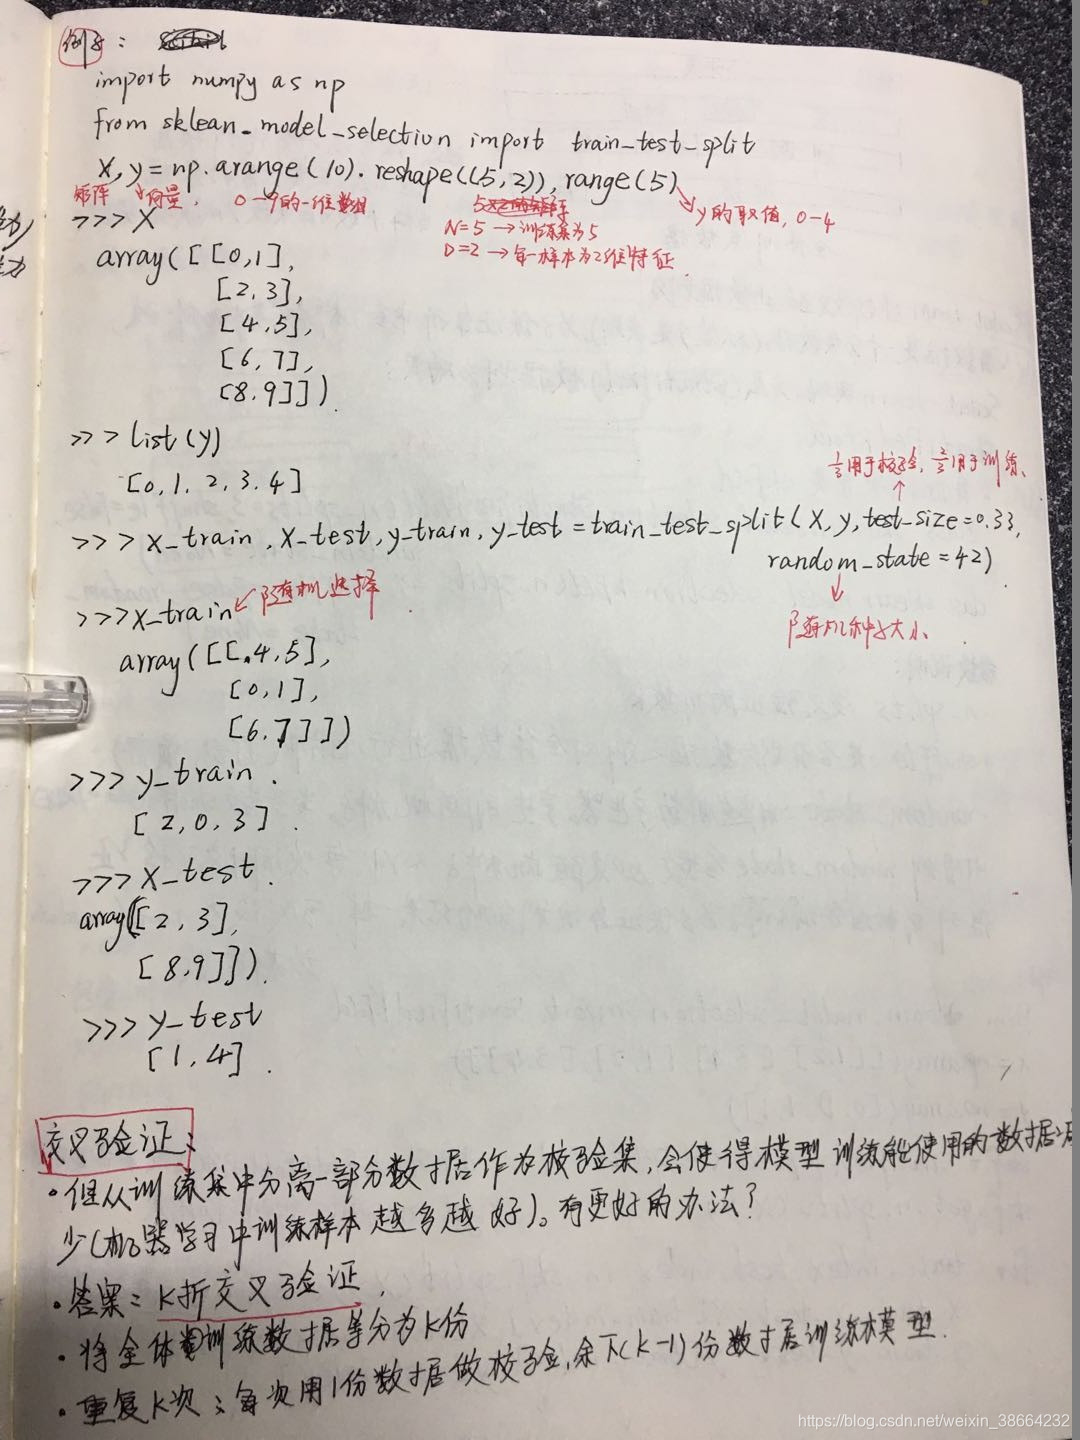 例子：
import numpy as np
from sklean_model_selection import train_test_split
X, y = np.arange(10).reshape((5,2)), range(5)
矩阵 向量, 0-9的一维数组 y的取值, 0-4
N=5 →训练集为5
D=2 →每一样本为2维特征
>>> X
array([[0,1],
[2,3],
[4,5],
[6,7],
[8,9]]).
>>> list(y)
[0,1,2,3,4]
⅓用于校验, ⅔用于训练.
>>> X_train, X_test, y_train, y_test = train_test_split(X, y, test_size=0.33,
random_state=42)
随机种子大小
>>> X_train 随机选择
array([[4,5],
[0,1],
[6,7]])
>>> y_train.
[2,0,3].
>>> X_test.
array([2,3],
[8,9]]).
>>> y_test
[1,4].
交叉验证：
·但从训练集中分离一部分数据作为校验集,会使得模型训练能使用的数据减
少(机器学习中训练样本越多越好)。有更好的办法?
·答案：K折交叉验证.
·将全体训练数据等分为K份
·重复K次：每次用1份数据做校验,余下(K-1)份数据训练模型.
https://blog.csdn.net/weixin_38664232